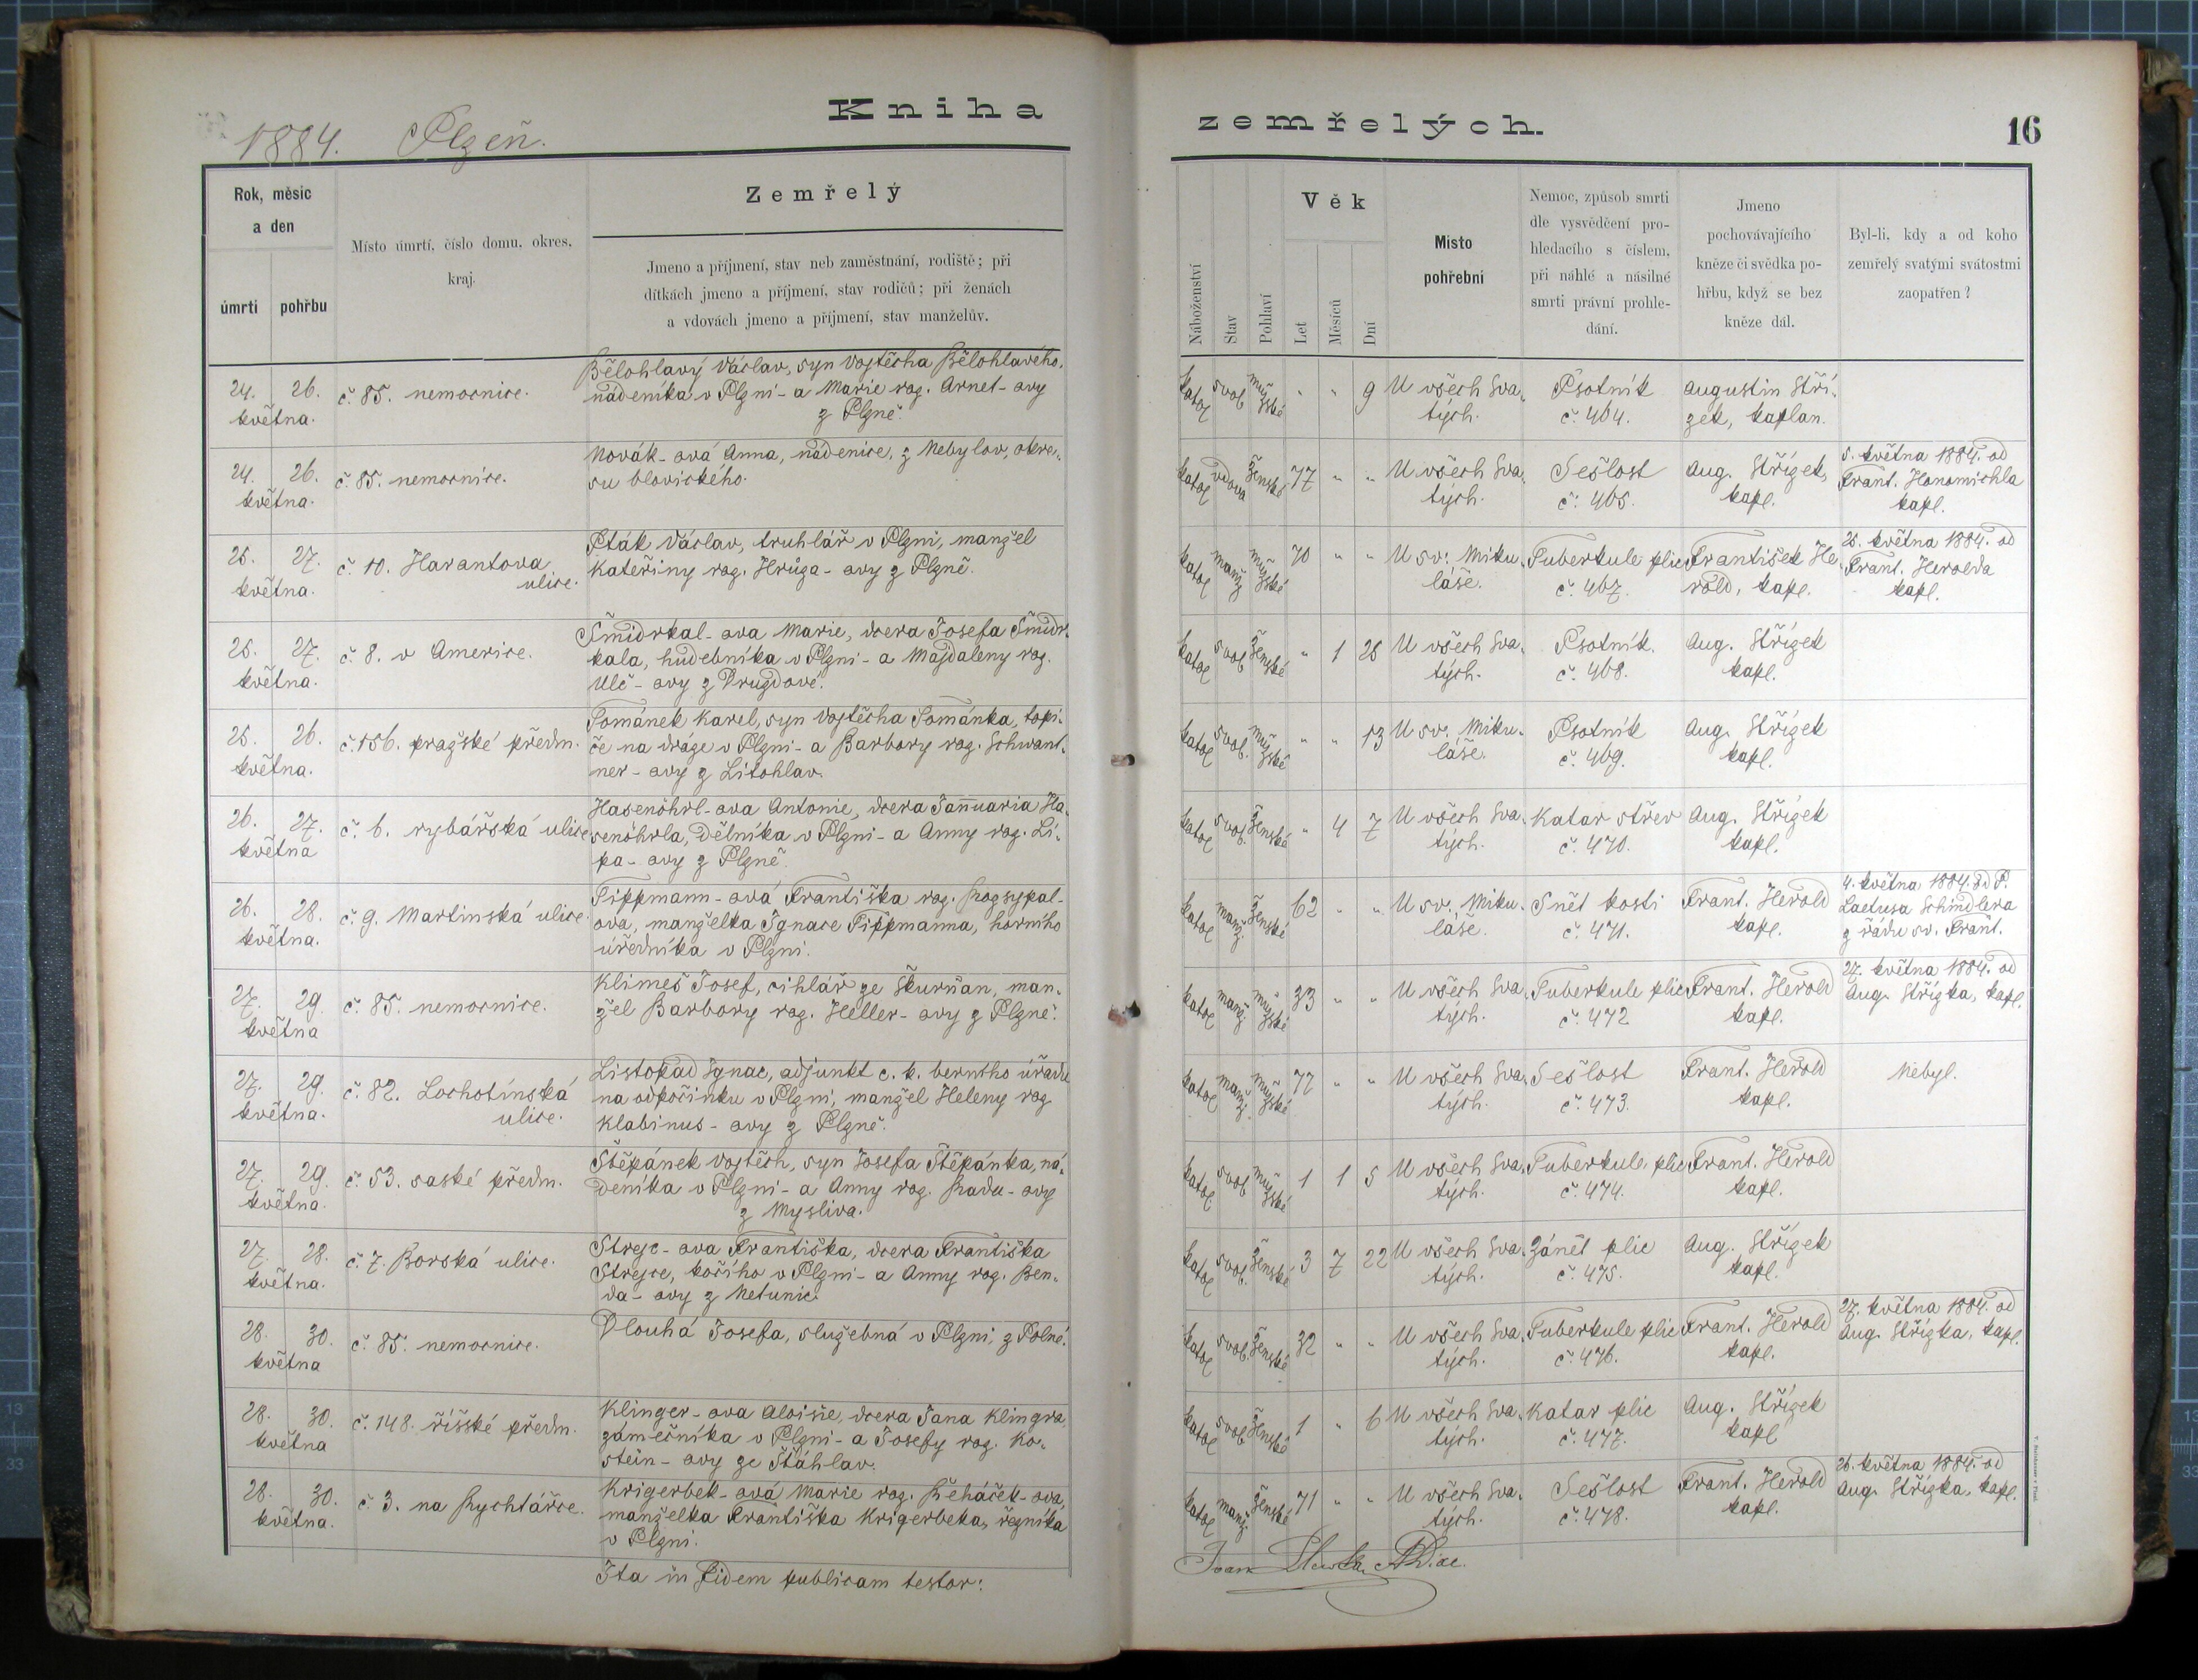 Kniha
zemřelých.
16
1884. Plzeň.
Rok, měsíc
a den
úmrtí
pohřbu
Místo úmrtí, číslo domu, okres,
kraj.
Zemřelý
Jmeno a příjmení, stav neb zaměstnání, rodiště; při
dítkách jmeno a příjmení, stav rodičů; při ženách
a vdovách jmeno a příjmení, stav manželův.
Náboženství
Stav
Pohlaví
Věk
Let
Měsíců
Dní
Místo
pohřební
Nemoc, způsob smrti
dle vysvědčení pro-
hledacího s číslem,
při náhlé a násilné
smrti právní prohle-
dání.
Jmeno
pochovávajícího
kněze či svědka po-
hřbu, když se bez
kněze dál.
Byl-li, kdy a od koho
zemřelý svatými svátostmi
zaopatřen?
24. 26.
května.
č. 85. nemocnice.
Bělohlavý Václav, syn Vojtěcha Bělohlavého,
nádeníka v Plzni - a Marie roz. Arnet-ovy
z Plzně.
katol svob mužské " " 9
U všech Sva-
tých.
Psotník
č. 464.
Augustin Stří-
zek, kaplan.
24. 26.
května.
č. 85. nemocnice.
Novák-ová Anna, nádenice, z Nebylov, okre-
su blovického.
katol vdova ženské 77 " "
U všech Sva-
tých.
Sešlost
č. 465.
Aug. Střízek,
kapl.
5. května 1884. od
Frant. Honomichla
kapl.
25. 27.
května.
č. 10. Harantova
ulice.
Pták Václav, truhlář v Plzni, manžel
Kateřiny roz. Hrůza-ovy z Plzně.
katol manž mužské 70 " "
U sv. Miku-
láše.
Tuberkule plic
č. 467.
František He-
rold, kapl.
25. května 1884. od
Frant. Herolda
kapl.
25. 27.
května.
č. 8. v Americe.
Šmidrkal-ova Marie, dcera Josefa Šmidr-
kala, hudebníka v Plzni - a Majdaleny roz.
Ulč-ovy z Druzdové.
katol svob ženské " 1 25
U všech Sva-
tých.
Psotník.
č. 468.
Aug. Střízek
kapl.
25. 26.
května.
č. 156. pražské předm.
Tománek Karel, syn Vojtěcha Tománka, topi-
če na dráze v Plzni - a Barbory roz. Schwant-
ner-ovy z Litohlav.
katol svob. mužské " " 13
U sv. Miku-
láše.
Psotník
č. 469.
Aug. Střízek
kapl.
26. 27.
května
č. 6. rybářská ulice
Hasenöhrl-ova Antonie, dcera Januaria Ha-
senöhrla, dělníka v Plzni - a Anny roz. Lí-
pa-ovy z Plzně.
katol svob. ženské " 4 7
U všech Sva-
tých.
Katar střev
č. 470.
Aug. Střízek
kapl.
26. 28.
května.
č. 9. Martinská ulice.
Tippmann-ová Františka roz. Rozsypal-
ova, manželka Ignace Tippmanna, horního
úředníka v Plzni.
katol manž. ženské 62 " "
U sv. Miku-
láše.
Snět kosti
č. 471.
Frant. Herold
kapl.
4. května 1884. od P.
Laetusa Schindlera
z řádu sv. Frant.
27. 29.
května
č. 85. nemocnice.
Klimeš Josef, cihlář ze Škurňan, man-
žel Barbory roz. Heller-ovy z Plzně.
katol manž mužské 33 " "
U všech Sva-
tých.
Tuberkule plic
č. 472
Frant. Herold
kapl.
27. května 1884. od
Aug. Střízka, kapl.
27. 29.
května.
č. 82. Lochotínská
ulice.
Listopad Ignac, adjunkt c. k. berního úřadu
na odpočinku v Plzni, manžel Heleny roz
Klabinus-ovy z Plzně.
katol manž. mužské 77 " "
U všech Sva-
tých.
Sešlost
č. 473.
Frant. Herold
kapl.
Nebyl.
27. 29.
května.
č. 53. saské předm.
Štěpánek Vojtěch, syn Josefa Štěpánka, ná-
deníka v Plzni - a Anny roz. Rada-ovy
z Mysliva.
katol svob mužské 1 1 5
U všech Sva-
tých.
Tuberkule plic
č. 474.
Frant. Herold
kapl.
27. 28.
května.
č. 7. Borská ulice.
Strejc-ova Františka, dcera Františka
Strejce, kočího v Plzni - a Anny roz. Ben-
da-ovy z Netunic.
katol svob. ženské 3 7 22
U všech Sva-
tých.
Zánět plic
č. 475.
Aug. Střízek
kapl.
28. 30.
května
č. 85. nemocnice.
Dlouhá Josefa, služebná v Plzni, z Polné.
katol svob. ženské 32 " "
U všech Sva-
tých.
Tuberkule plic
č. 476.
Frant. Herold
kapl.
27. května 1884. od
Aug. Střízka, kapl.
28. 30.
května
č. 148. říšské předm.
Klinger-ova Aloisie, dcera Jana Klingra
zámečníka v Plzni - a Josefy roz. Ko-
stein-ovy ze Šťáhlav.
katol svob ženské 1 " 6
U všech Sva-
tých.
Katar plic
č. 477.
Aug. Střízek
kapl
28. 30.
května.
č. 3. na Rychtářce.
Krigerbek-ová Marie roz. Řeháček-ova,
manželka Františka Krigerbeka, řezníka
v Plzni.
katol manž. ženské 71 " "
U všech Sva-
tých.
Sešlost
č. 478.
Frant. Herold
kapl.
26. května 1884. od
Aug. Střízka, kapl.
Ita in fidem publicam testor: